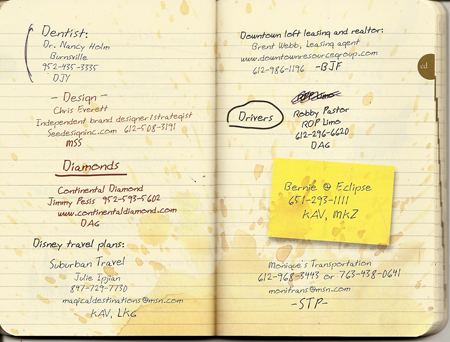 Dentist:
Dr. Nancy Holm
Burnsville
952-435-3335
DJY
- Design -
Chris Everett
Independent brand designer/strategist
Seedesigninc.com 612-508-3191
MSS
Diamonds
Continental Diamond
Jimmy Pesis 952-593-5602
www.continentaldiamond.com
DAG
Disney travel plans:
Suburban Travel
Julie Ipjian
847-729-7730
magicaldestinations@msn.com
KAV, LKG
Downtown loft leasing and realtor:
Brent Webb, Leasing agent
www.downtownresourcegroup.com
612-986-1196 -BJF
Drivers
Robby Pastor
RDP Limo
612-296-6620
DAG
Bernie @ Eclipse
651-293-1111
KAV, MKZ
Monique's Transportation
612-968-3443 or 763-438-0641
monitrans@msn.com
-STP-